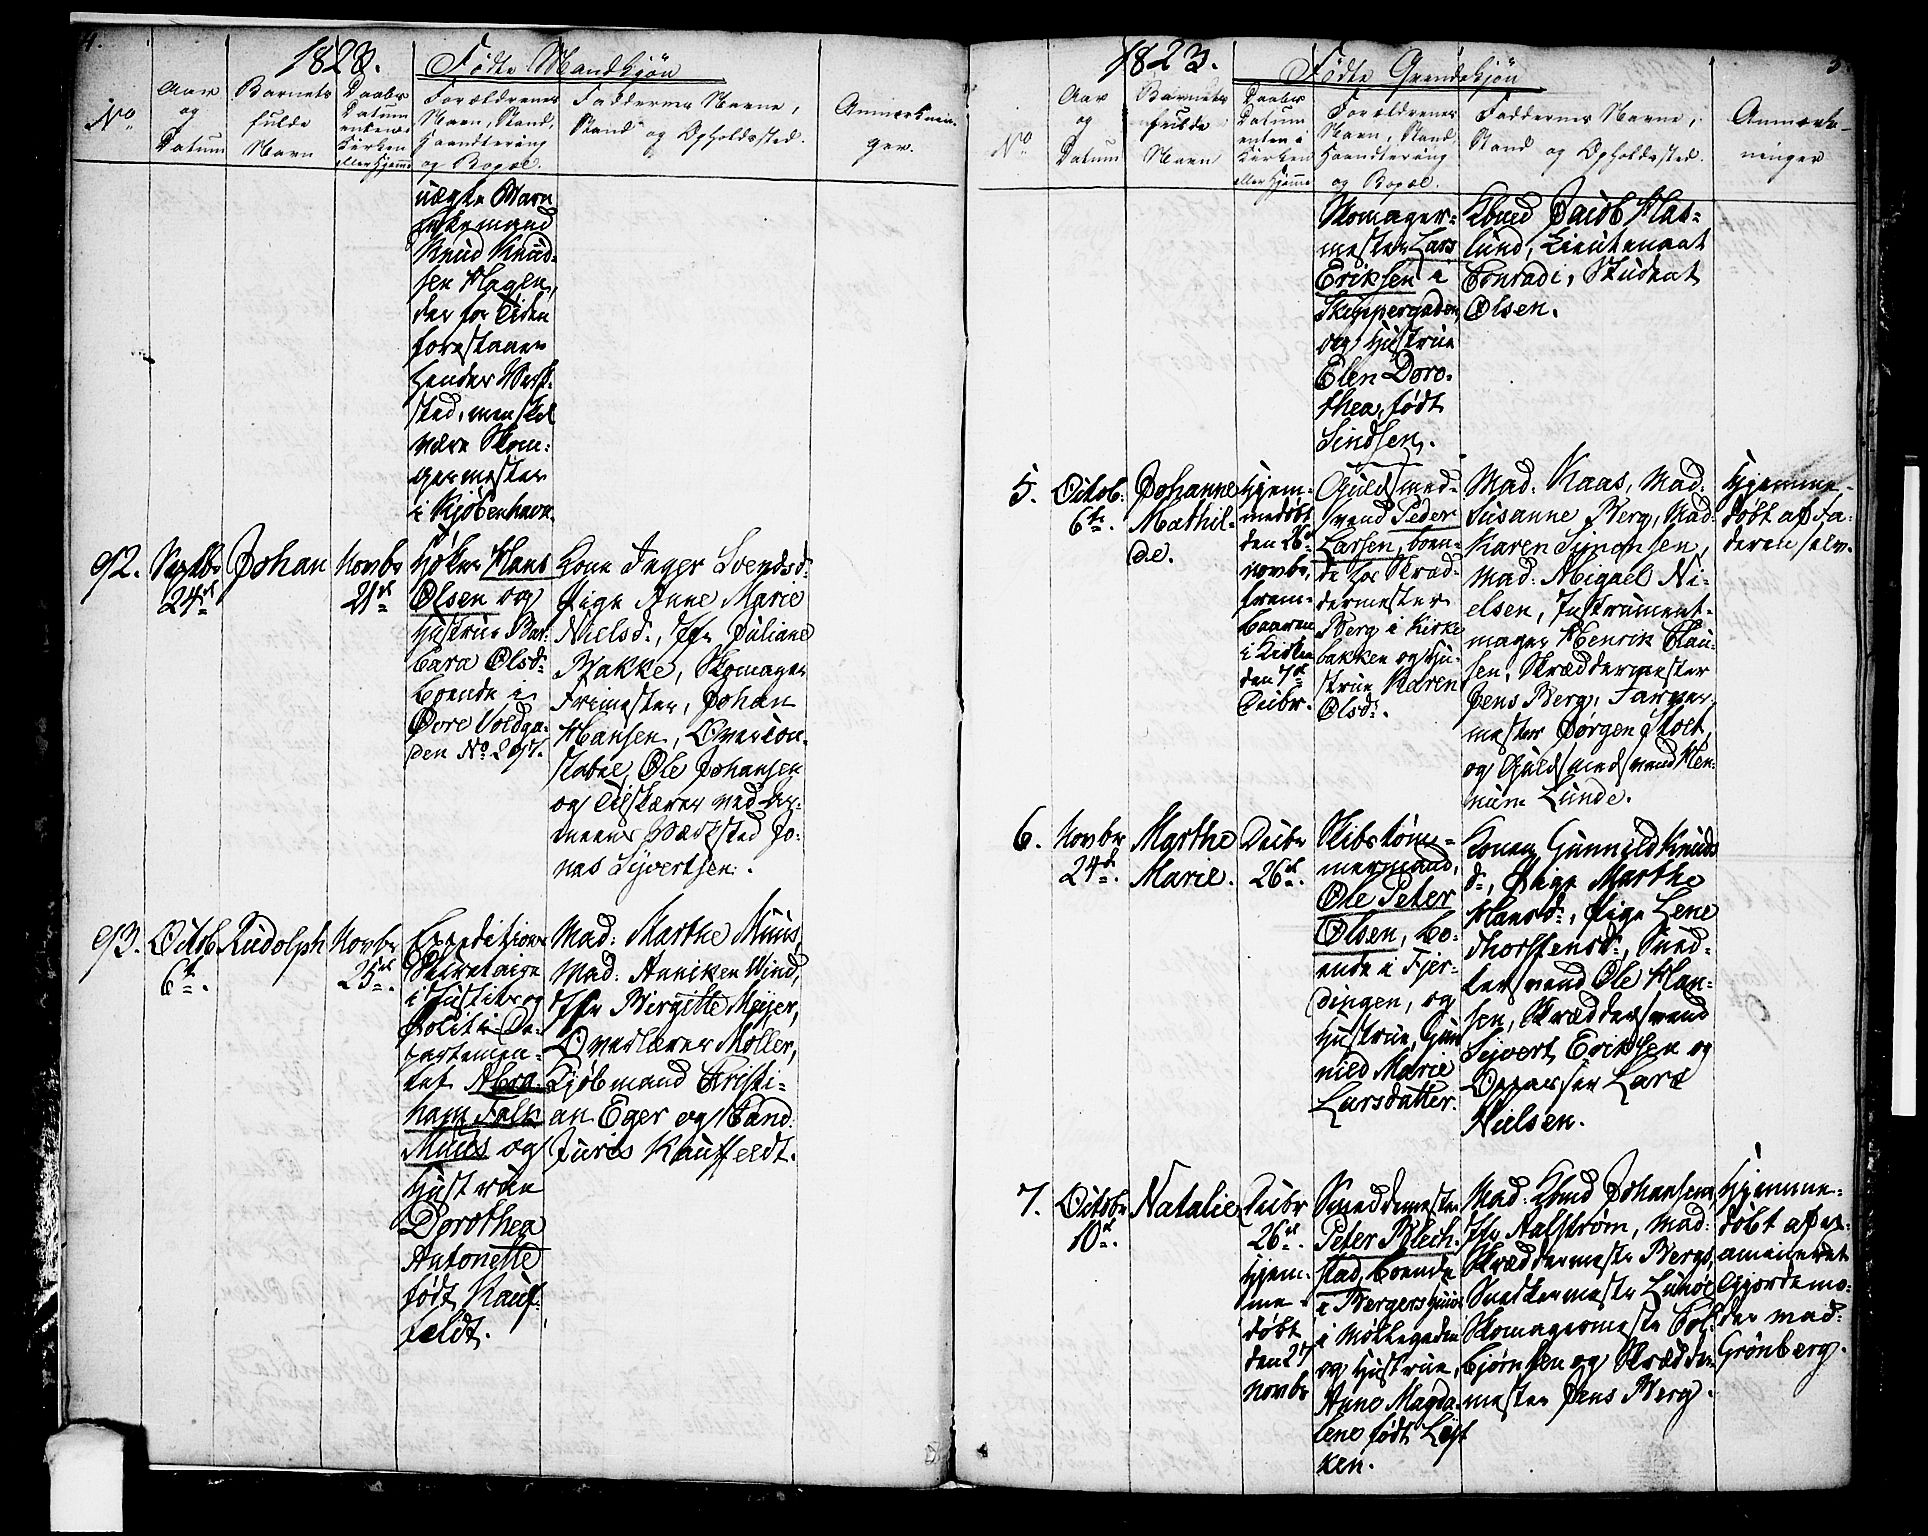 4.
1823.
Födte Mandkjön
No
Aar
og
Datum
Barnets
fulde
Navn
Daabs
Datum
enten i
Kirken
eller Hjemme
Forældrenes
Navn, Stand,
Haandtering
og Bopæl.
Faddernes Navne,
Stand og Opholdssted.
Anmærknin-
ger.
uægte Barn
Knud Knud-
sen Hagen,
der for Tiden
forestaaer
hendes Værk-
sted, men skal
være Skom-
germester
i Kjöbenhavn.
92.
Septbr
24de
Johan
Novbr
21de
Höker Hans
Olsen og
Hustrue Bar-
bara Olsd:
boende i
Övre Voldga-
den No 207.
Kone Inger Svendsd:
Pige Anne Marie
Nielsd:, Jfr Juliane
Bakke, Skomager
Frimester, Johan
Hansen, Overcon-
stabel Ole Johansen
og Tilskærer ved Ar-
meens Værksted Jo-
nas Syvertsen.
93.
Octob
6te.
Rudolph
Novbr
25de.
Expeditions
Secretaire
i Justits og
Politi De-
partemen-
tet Abra-
ham Falk
Muus og
Hustrue
Dorothea
Antonette
födt Kauf-
feldt.
Mad: Marthe Muus,
Mad: Anniken Wind,
Jfr Birgitte Meyer,
Overlærer Möller,
Kjöbmand Kristi-
an Eger og Cand:
Juris Kauffeldt.
5
1823.
Födte Qvindekjön
No
Aar
og
Datum
Barnets
fulde
Navn
Daabs
Datum
enten i
Kirken
eller Hjemme
Forældrenes
Navn, Stand
Haandtering
og Bopæl.
Faddernes Navne,
Stand og Opholdssted.
Anmærk-
ninger
Skomager-
mester Lars
Eriksen i
Skippergaden,
og Hustrue
Elen Doro-
thea, födt
Lindsen.
Kbmd Jacob Has-
lund, Lieutenant
Conradi, Student
Olsen.
5.
Octob:
6te.
Johanne
Mathil-
de.
Hjem-
medöbt
den 26de
Novbr,
frem-
baaren
i Kirken
den 7de
Decbr.
Guldsmed-
svend Peder
Larsen, boen-
de hos Skræd-
dermester
Berg i Kirke
bakken og Hu-
strue Karen
Olsd:.
Mad: Kaas, Mad:
Susanne Berg, Mad:
Karen Simonsen,
Mad: Abigael Ni-
elsen, Instrument-
mager Henrik Clau-
sen, Skræddermester
Jens Berg, Farver
mester Jörgen Holt,
og Guldsmedsvend Hen-
Lunde.
Hjemme-
döbt af Fa-
deren selv.
6.
Novbr
24de.
Marthe
Marie.
Decbr
26de.
Skibstöm-
mermand,
Ole Peter
Olsen, bo-
ende i Fjer-
dingen, og
Hustrue, Gun
nild Marie
Larsdatter.
Konen Gunnild Knuds
d:, Pige Marthe
Hansd:, Pige Lene
Thorstensd:, Sned-
kersvend Ole Han-
sen, Skræddersvend
Syvert Eriksen og
Oppasser Lars
Nielsen.
7.
Octobr
10de.
Natalie
Decbr
26de.
Hjem-
me-
döbt
den 27
Novbr
Smeddemester
Peter Blech-
stad, boende
i Bergers Huus
i Möllegaden
og Hustrue,
Anne Magda-
lene födt Lyf
ken.
Mad: Kbmd Johansen
Jfr Aalström, Mad:
Skræddermester Bergs,
Snedkermester Lunöe
Skomagermester Col-
björnsen og Skrædder
mester Jens Berg.
Hjemme-
döbt af ex-
amineret
Gjordemo-
der Mad:
Grönberg.